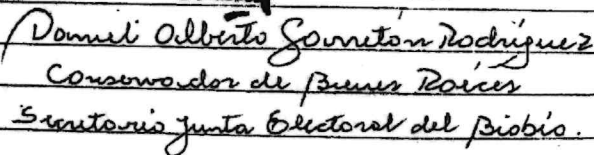 Daniel Alberto Gorretón Rodríguez
Conservador de Bienes Raíces
Secretario Junta Electoral del Biobío.